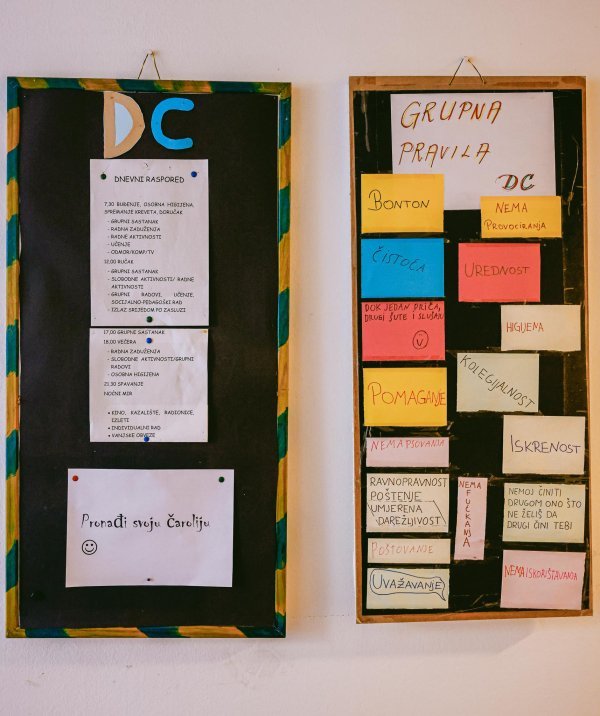 DC
DNEVNI RASPORED
7,30 BUĐENJE, OSOBNA HIGIJENA,
SPREMANJE KREVETA, DORUČAK
- GRUPNI SASTANAK
- RADNA ZADUŽENJA
- RADNE AKTIVNOSTI
- UČENJE
- ODMOR/KOMP/TV
12,00 RUČAK
- GRUPNI SASTANAK
- SLOBODNE AKTIVNOSTI/ RADNE
AKTIVNOSTI
- GRUPNI RADOVI, UČENJE,
SOCIJALNO-PEDAGOŠKI RAD
- IZLAZ SRIJEDOM PO ZASLUZI
17,00 GRUPNI SASTANAK
18,00 VEČERA
- RADNA ZADUŽENJA
- SLOBODNE AKTIVNOSTI/GRUPNI
RADOVI
- OSOBNA HIGIJENA
21,30 SPAVANJE
NOĆNI MIR
• KINO, KAZALIŠTE, RADIONICE,
IZLETI
• INDIVIDUALNI RAD
• VANJSKE OBVEZE
Pronađi svoju čaroliju
☺
GRUPNA
PRAVILA
DC
BONTON
NEMA
PROVOCIRANJA
ČISTOĆA
UREDNOST
DOK JEDAN PRIČA,
DRUGI ŠUTE I SLUŠAJU
HIGIJENA
KOLEGIJALNOST
POMAGANJE
NEMA PSOVANJA
ISKRENOST
RAVNOPRAVNOST
POŠTENJE
UMJERENA
DAREŽLJIVOST
NEMA
FUĆKANJA
NEMOJ ČINITI
DRUGOM ONO ŠTO
NE ŽELIŠ DA
DRUGI ČINI TEBI
POŠTOVANJE
UVAŽAVANJE
NEMA ISKORIŠTAVANJA